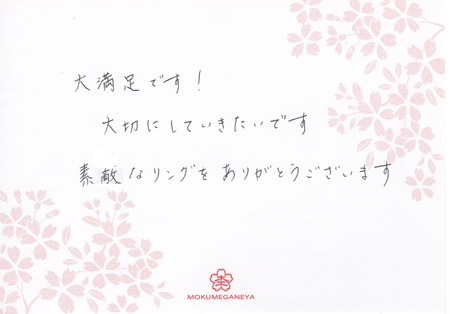 大満足です!
大切にしていきたいです
素敵なリングをありがとうございます
MOKUMEGANEYA